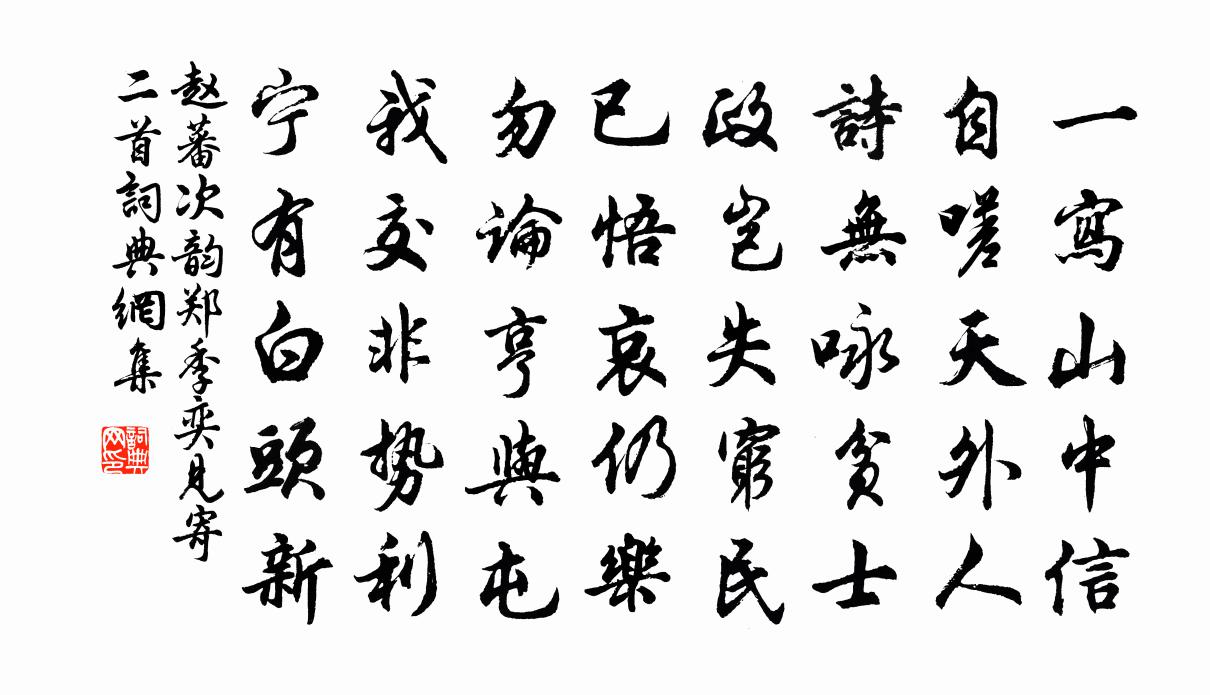 一寫山中信
自嗟天外人
詩無咏貧士
政豈失窮民
已悟哀仍樂
勿論亨與屯
我交非勢利
宁有白頭新
赵蕃次韵郑季奕見寄
二首詞典網集
詞典
网印